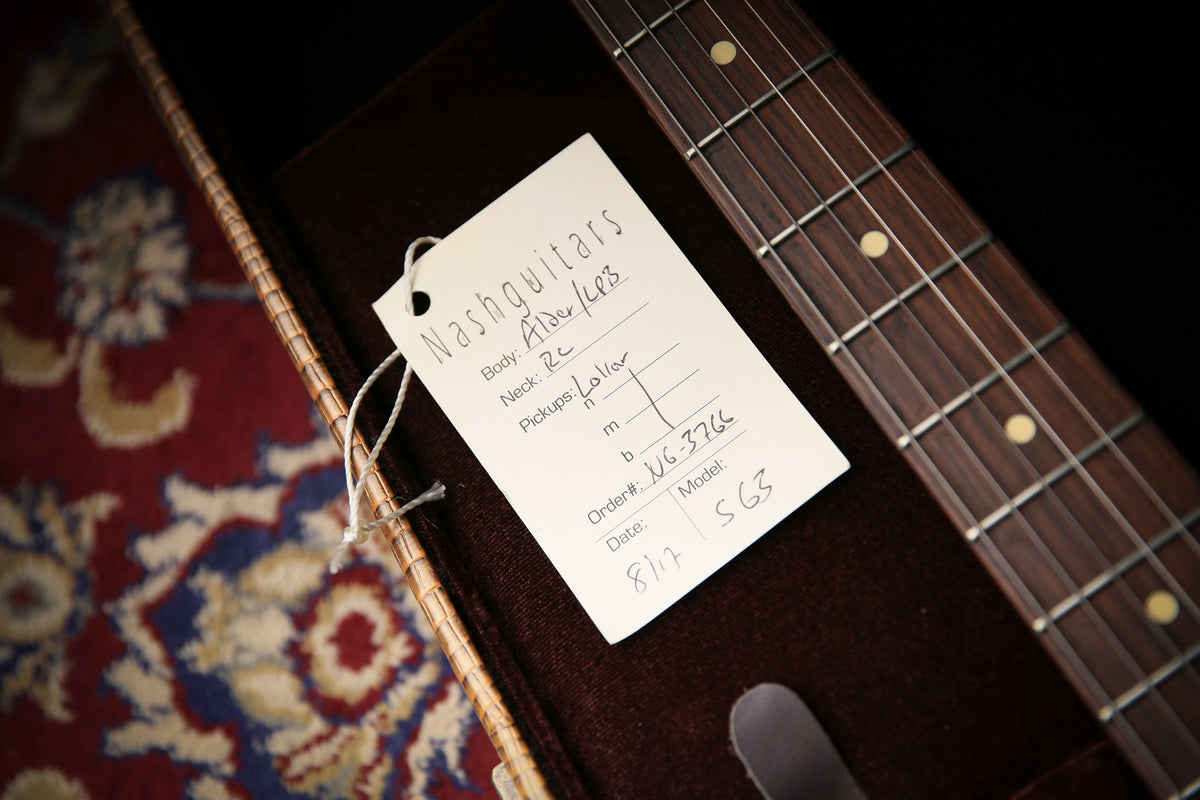 Nashguitars
Body: Alder/LPB
Neck: RC
Pickups: Lollar
n
m
b
Order#: NG-3766
Date: Model:
8/17 S63